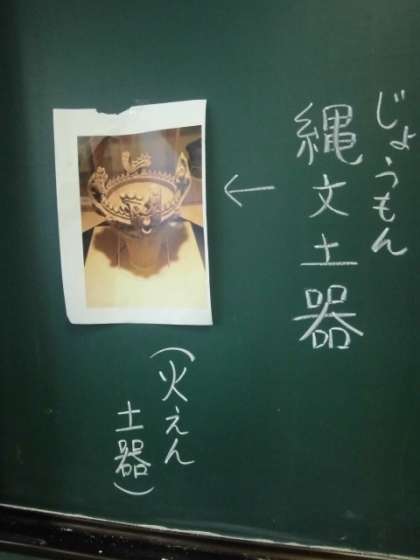 じょうもん
縄文土器
←
(火えん
土器)